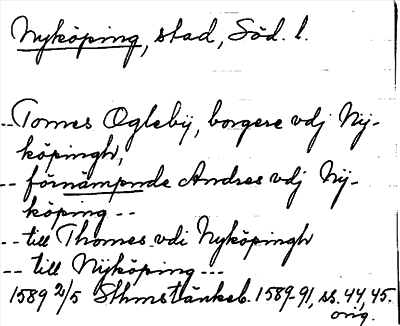 Nyköping, stad, Söd. l.
-- Tomes Ogleby, borgere vdj Ny-
köpingh,
-- förnämpnde Andres vdj Ny-
köping --
-- till Thomes vdi Nyköpingh
-- till Nyköping ---
1589 2/5 Sthmstänkeb. 1589-91, ss. 44, 45.
orig.